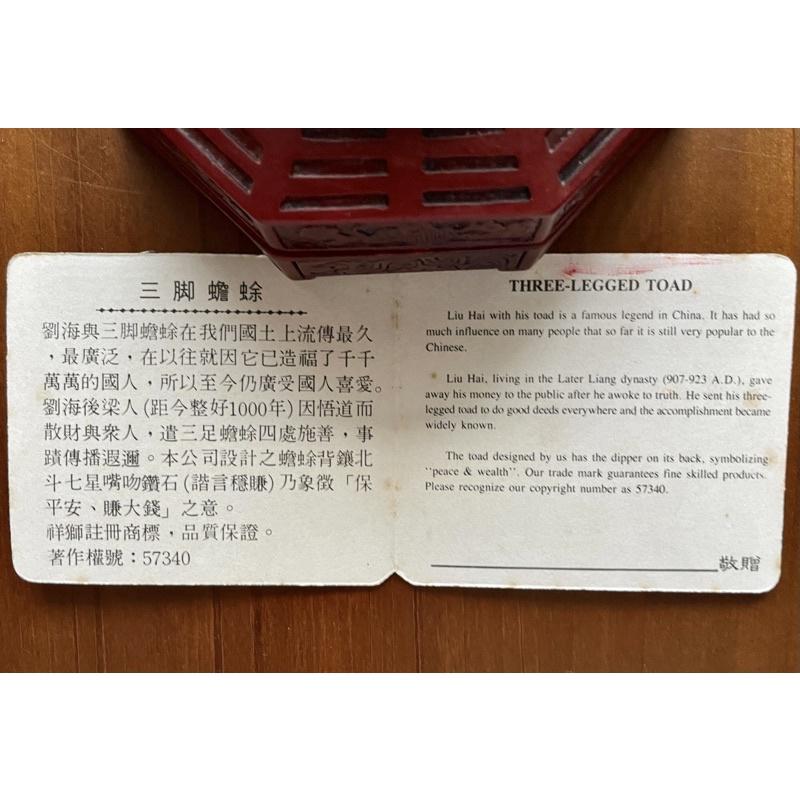 三脚蟾蜍
劉海與三脚蟾蜍在我們國土上流傳最久
，最廣泛，在以往就因它已造福了千千
萬萬的國人，所以至今仍廣受國人喜愛。
劉海後梁人(距今整好1000年)因悟道而
散財與衆人，遣三足蟾蜍四處施善，事
蹟傳播遐邇。本公司設計之蟾蜍背鑲北
斗七星嘴吻鑽石(諧言穩賺)乃象徵「保
平安、賺大錢」之意。
祥獅註冊商標，品質保證。
著作權號：57340
THREE-LEGGED TOAD
Liu Hai with his toad is a famous legend in China. It has had so
much influence on many people that so far it is still very popular to the
Chinese.
Liu Hai, living in the Later Liang dynasty (907-923 A.D.), gave
away his money to the public after he awoke to truth. He sent his three-
legged toad to do good deeds everywhere and the accomplishment became
widely known.
The toad designed by us has the dipper on its back, symbolizing
"peace & wealth". Our trade mark guarantees fine skilled products.
Please recognize our copyright number as 57340.
敬贈